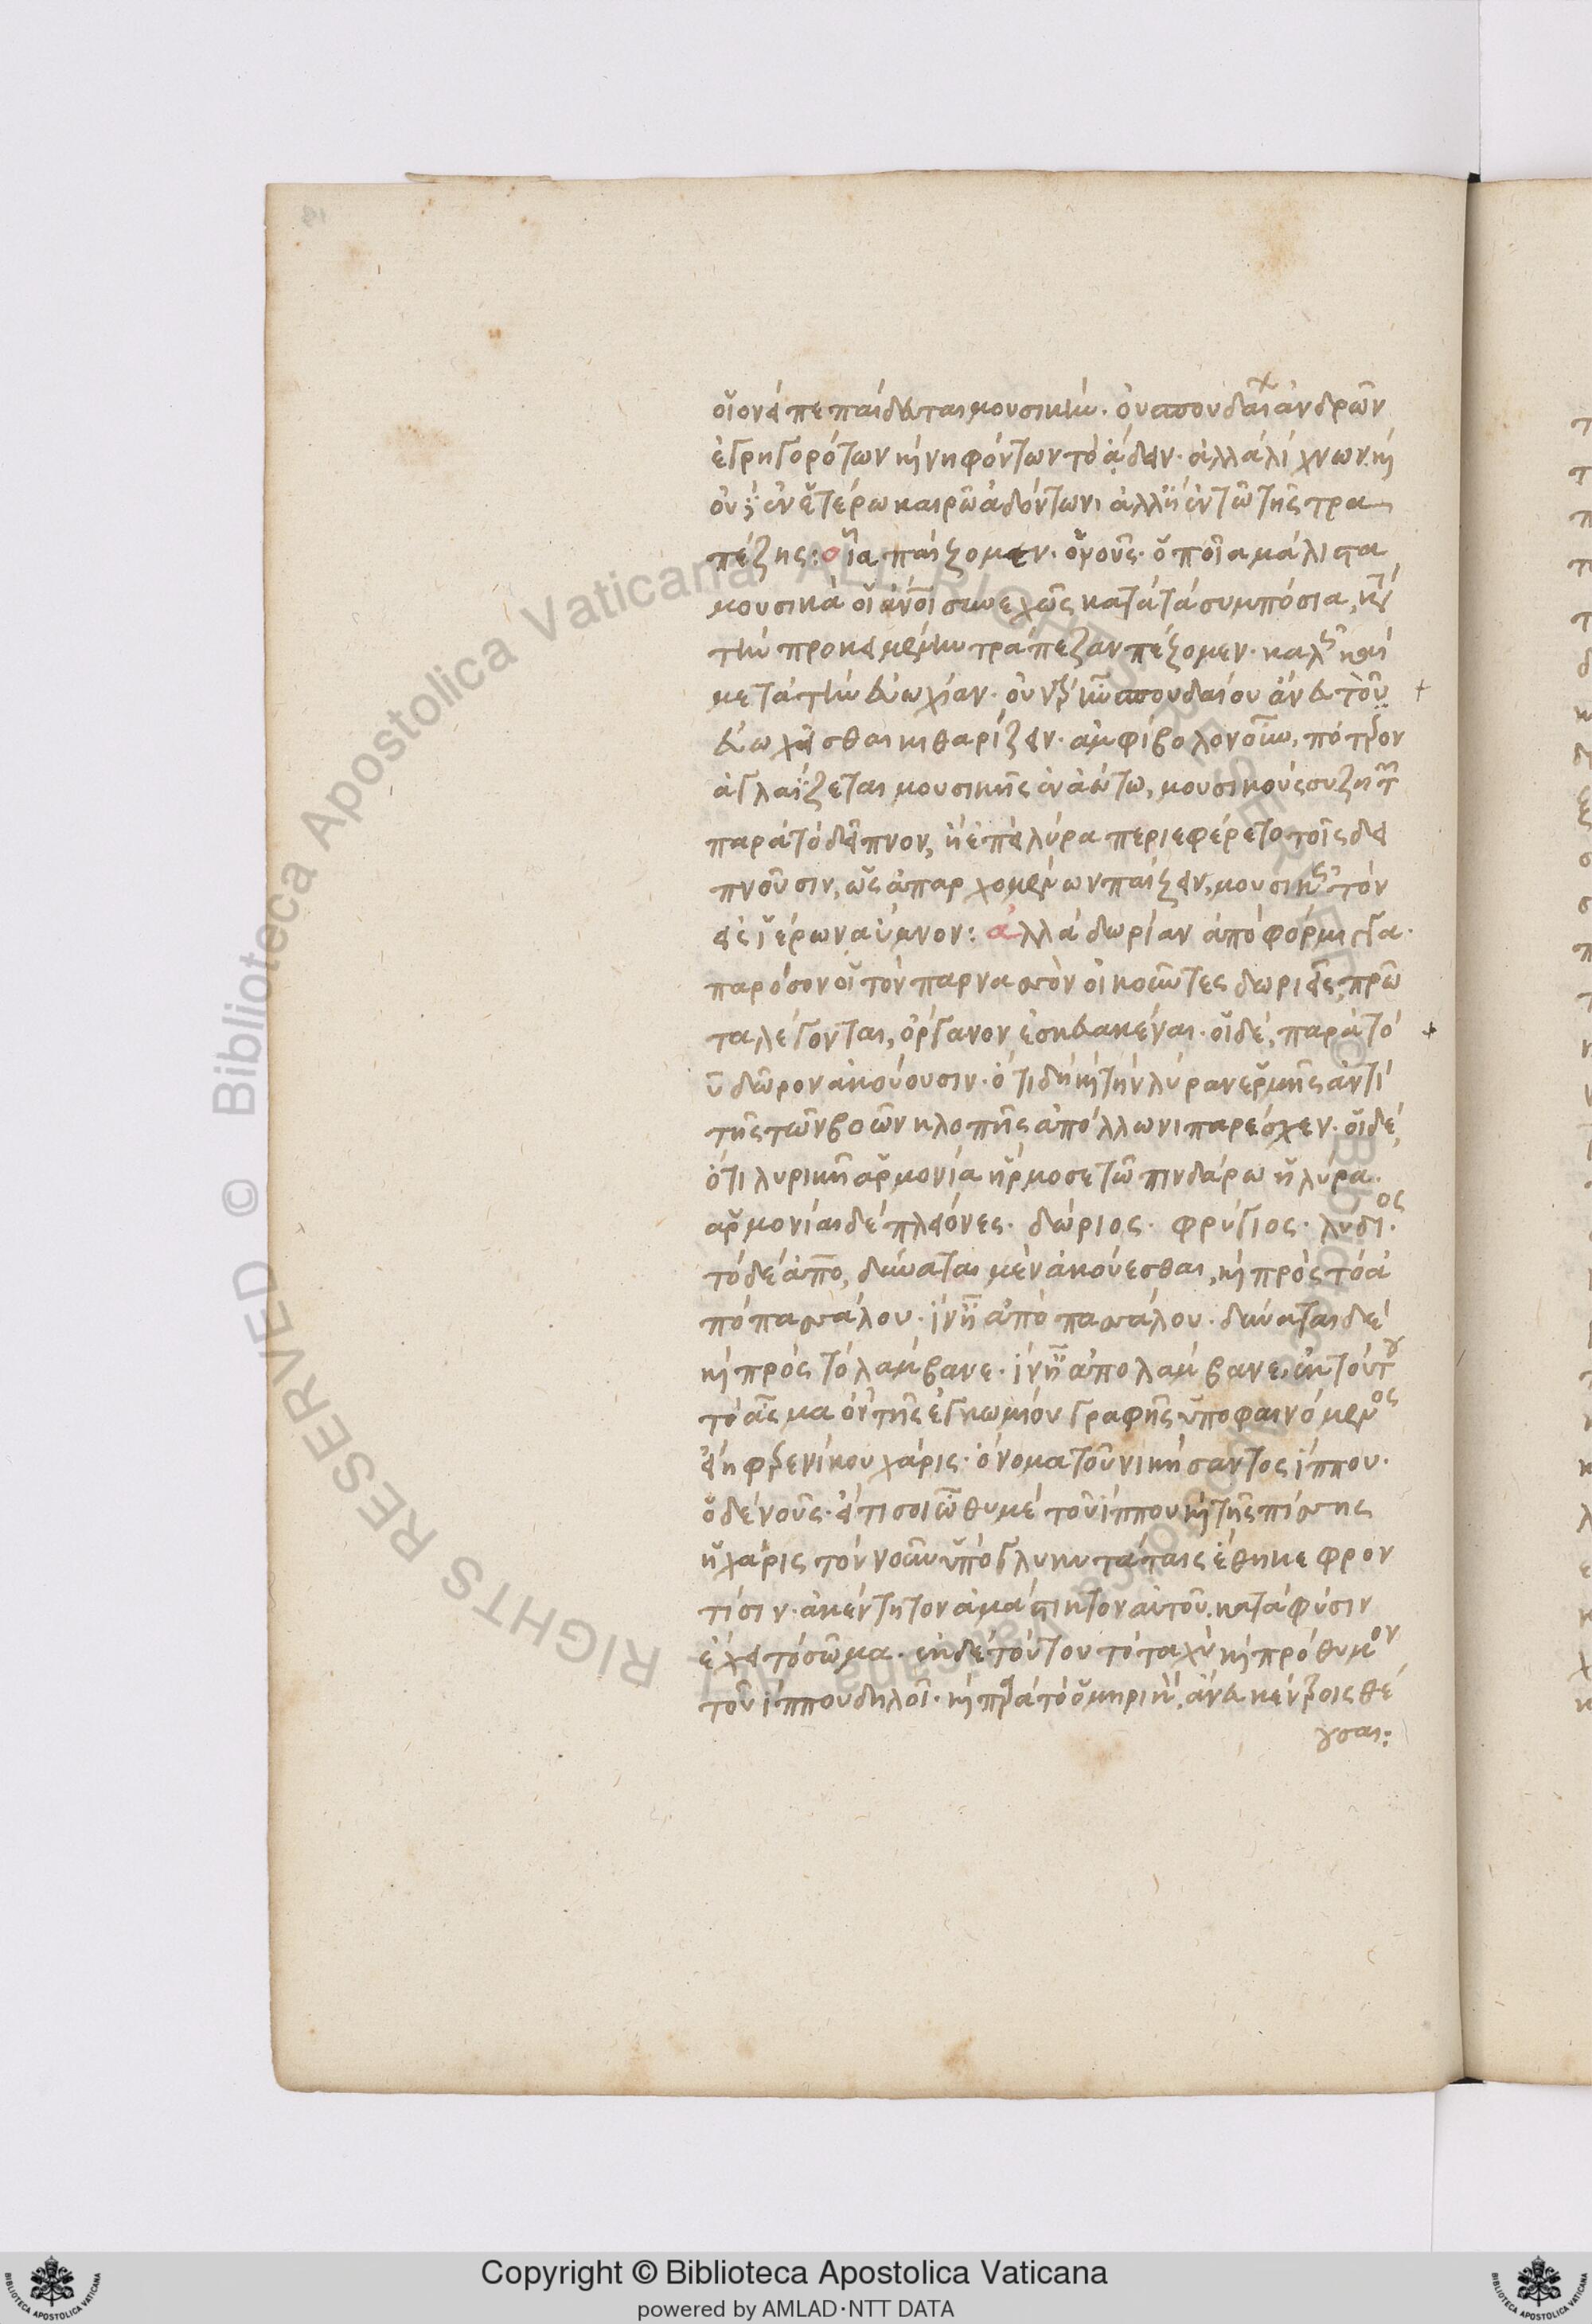 οἷον εἰ πεπαίδευται μουσικήν. οὐ σπουδαί ἀνδρῶν
ἐγρηγορότων καὶ νηφόντων τὸ ἄδειν. ἀλλὰ λίχνων. καὶ
οὐκ ἐν ἑτέρω καιρῶ ἀδόντων, ἀλλ' ἢ ἐν τῶ τῆς τρα
πέζης: οἷα παίζομεν. ὁ νοῦς. ὁποῖα μάλιστα
μουσικὰ οἱ ἄνοι συνεχῶς κατὰ τὰ συμπόσια, κατὰ
τὴν προκειμένην τράπεζαν παίζομεν. καλῶς καὶ
μετὰ τὴν εὐωχίαν. οὐ γὰρ ἦν σπουδαίου ἄνευ τοῦ
εὐωχεῖσθαι κιθαρίζειν. ἀμφίβολον οὖν, πότερον
ἀγλαΐζεται μουσικῆς ἐν ἀώτω, μουσικοὺς συζητ
παρὰ τὸ δεῖπνον, ἢ ἐπεὶ λύρα περιεφέρετο τοῖς δει
πνοῦσιν, ὡς ἀπαρχομένων παίζειν, μουσικῶς τὸν
εἰς ἱέρωνα ὕμνον: ἀλλὰ δωρίαν ἀπὸ φόρμιγγα.
παρόσον οἱ τὸν παρνασσὸν οἰκοῦντες δωριεῖς, πρῶ
τα λέγονται, ὄργανον ἐσκευακέναι. οἱ δέ, παρὰ τὸ
δῶρον ἀκούουσιν. ὅτι δὴ καὶ τὴν λύραν ἑρμῆς ἀντὶ
τῆς τῶν βοῶν κλοπῆς ἀπόλλωνι παρέσχεν. οἱ δέ,
ὅτι λυρικῆ ἁρμονία ἥρμοσε τῶ πινδάρω ἡ λύρα.
ἁρμονίαι δὲ πλείονες. δώριος. φρύγιος. λύδιος.
τὸ δὲ ἀπο, δύναται μὲν ἀκούεσθαι, καὶ πρὸς τὸ ἀ
πὸ πασσάλου. ἵν' ἦ ἀπὸ πασσάλου. δύναται δὲ
καὶ πρὸς τὸ λάμβανε. ἵν' ἦ ἀπολάμβανε, ἐκ τούτου
τὸ ἆσμα ἐκ τῆς ἐγκωμίου γραφῆς ὑποφαινόμενος
εἴη φερενίκου χάρις. ὄνομα τοῦ νικήσαντος ἵππου.
ὁ δὲ νοῦς. εἴ τι σοι ὦ θυμὲ τοῦ ἵππου καὶ τῆς πίσης
ἡ χάρις τὸν νοῦν ὑπὸ γλυκυτάταις ἔθηκε φρον
τίσιν. ἀκέντητον ἀμάστικτον αὐτοῦ. κατὰ φύσιν
ἔχει τὸ σῶμα. ἐκ δὲ τούτου τὸ ταχὺ καὶ πρόθυμον
τοῦ ἵππου δηλοῖ. καὶ παρὰ τὸ ὁμηρικὸν, ἄνευ κέντροιο θέ
υσαι: